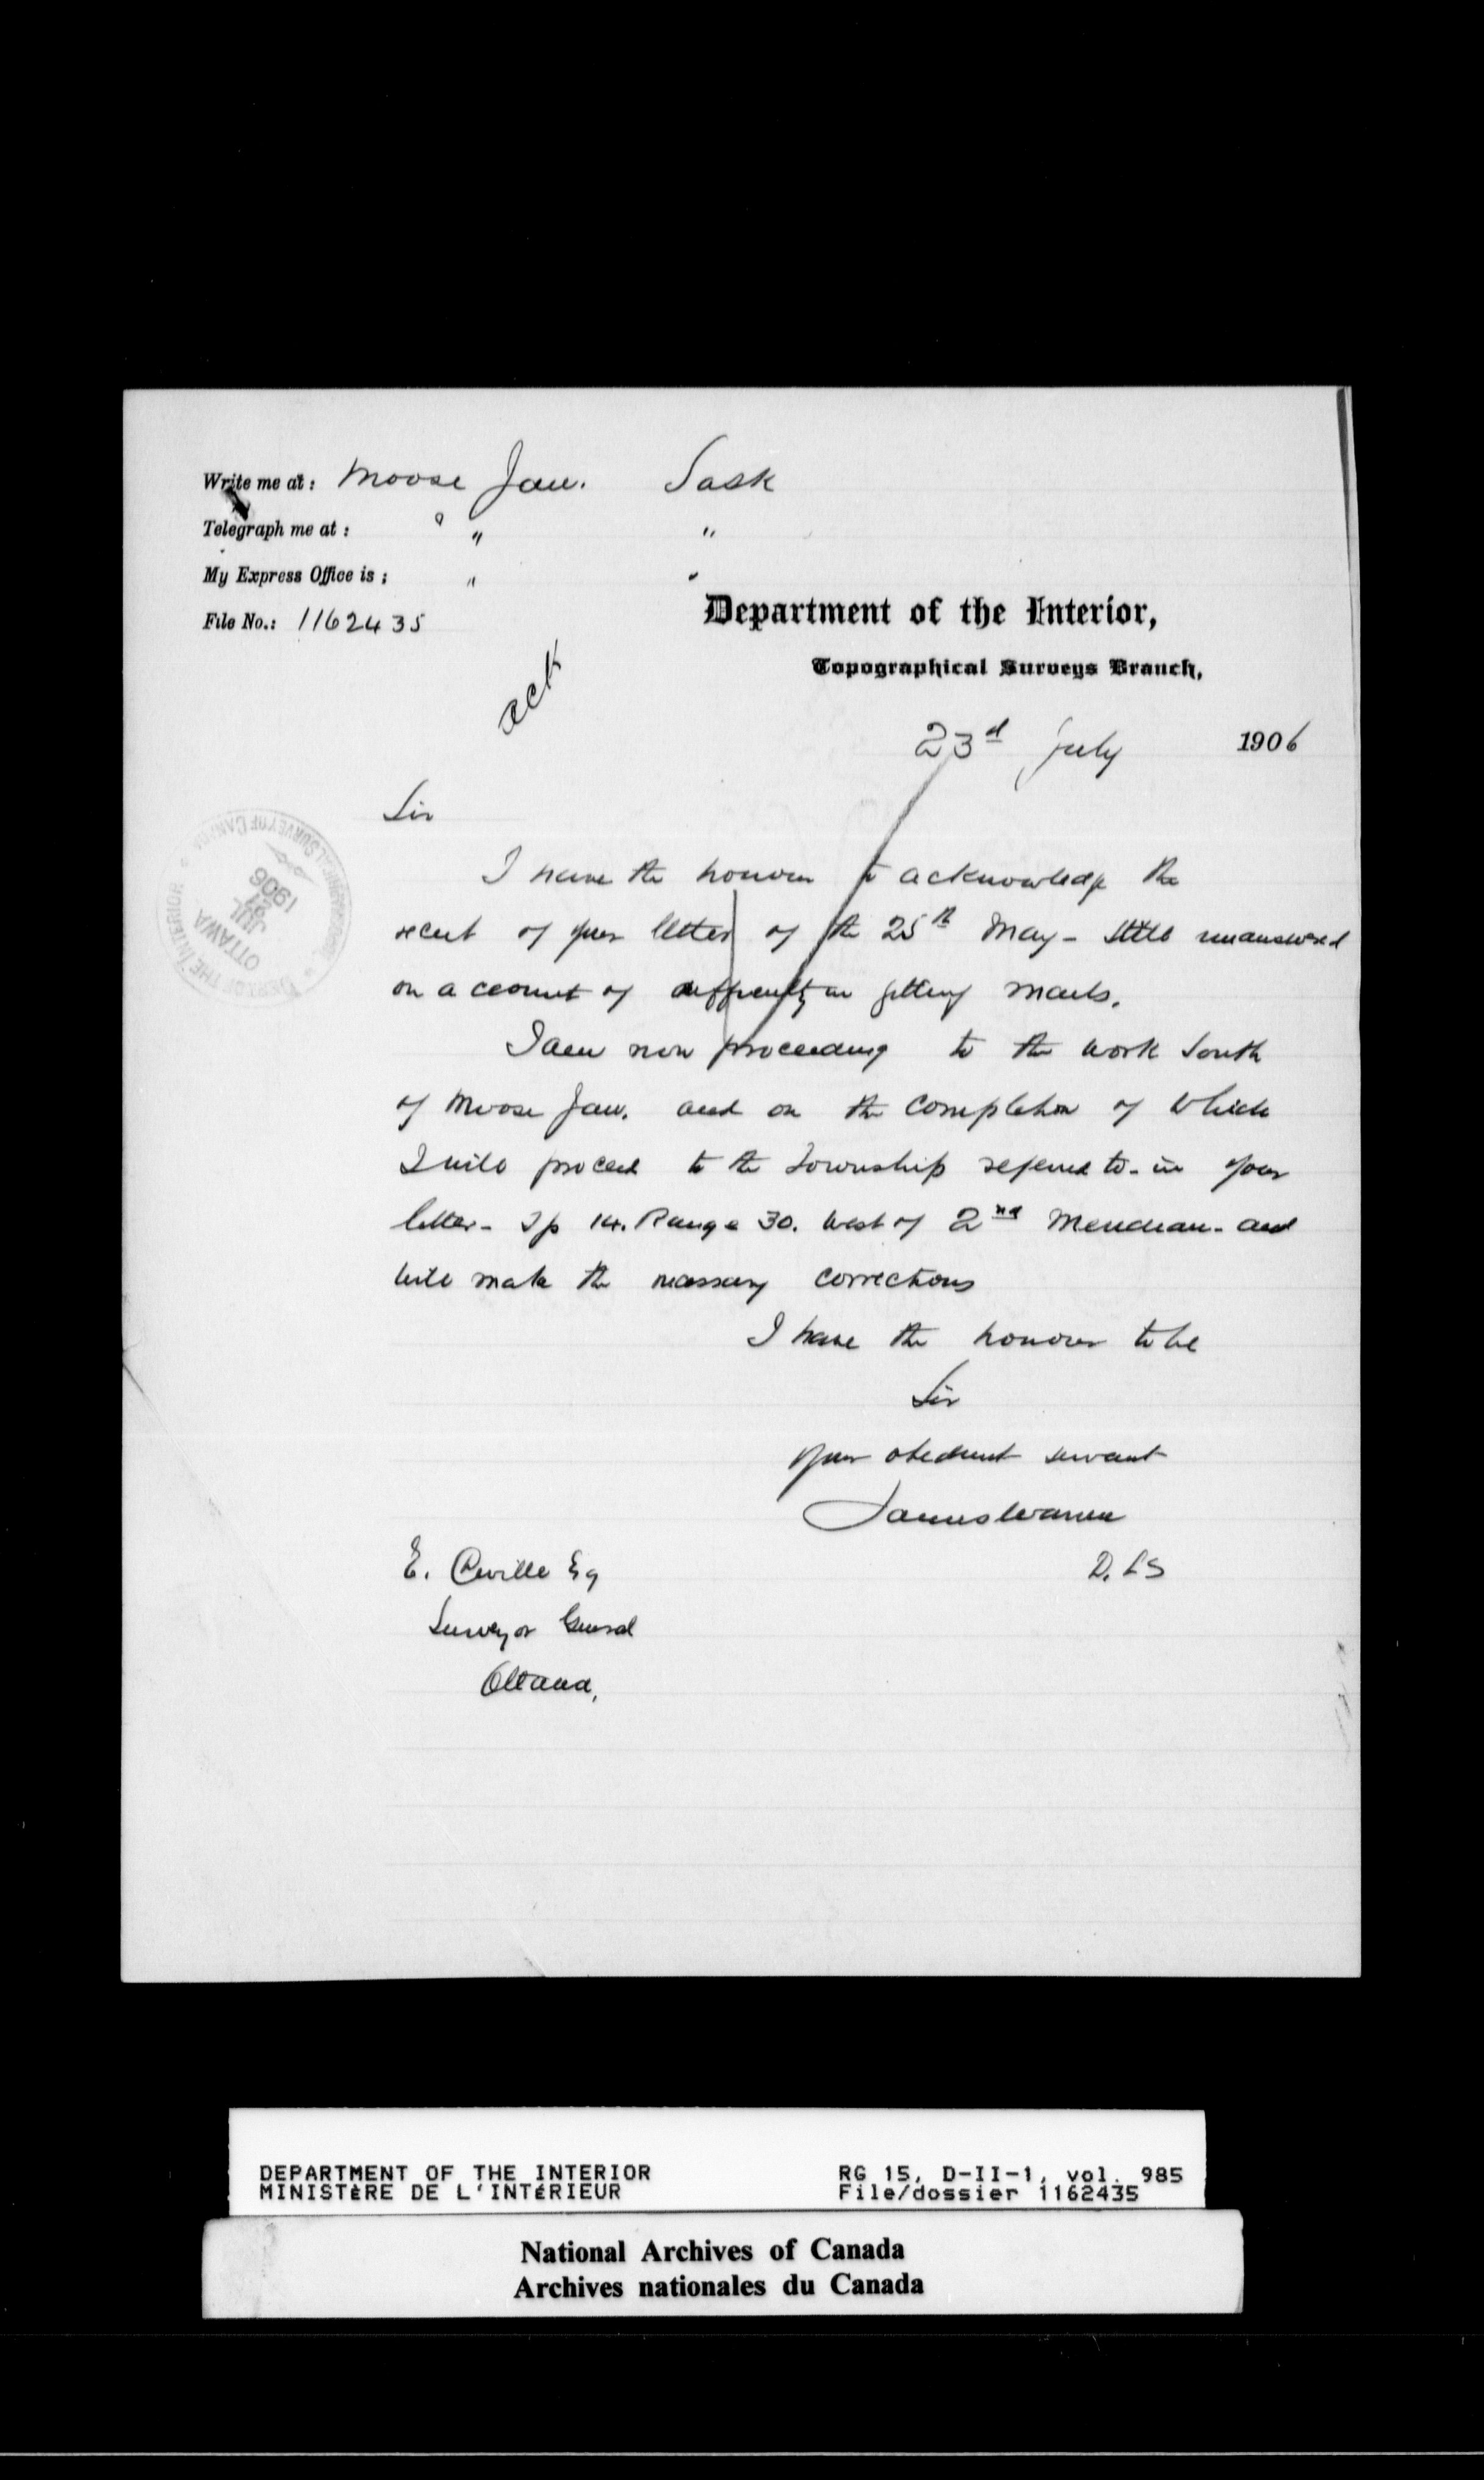 Write me at: Moose Jaw. Sask
Telegraph me at: " " "
My Express Office is: " "
File No.: 1162435
Department of the Interior,
Topographical Surveys Branch,
ack
23d July 1906
DEPT OF THE INTERIOR
OTTAWA
JUL
1906
Sir
I have the honour to acknowledge the
receit of your letter of the 25th May - still unanswered
on account of difficulty in getting mails.
I am now proceeding to the work South
of Moose Jaw. and on the completion of which
I will proceed to the Township referred to - in your
letter - Tp 14. Range 30. West of 2nd Meridian - and
will make the necessary corrections
I have the honour to be
Sir
Your obedient servant
James Warren
D. L S
E. Deville Esq
Surveyor General
Ottawa,
DEPARTMENT OF THE INTERIOR
MINISTÈRE DE L'INTÉRIEUR
RG 15, D-II-1, vol. 985
File/dossier 1162435
National Archives of Canada
Archives nationales du Canada